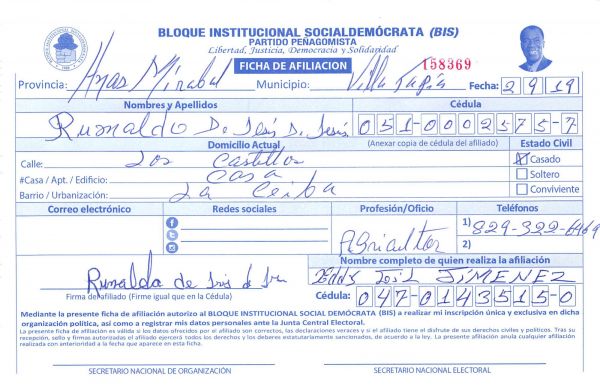 BLOQUE INSTITUCIONAL SOCIALDEMÓCRATA (BIS)
PARTIDO PEÑAGOMISTA
Libertad, Justicia, Democracia y Solidaridad
FICHA DE AFILIACION
158369
Provincia: Hnas Mirabal Municipio: Villa Tapia Fecha: 2 9 19
Nombres y Apellidos Cédula
Rumaldo De Jesús D. Jesús 051-0002575-7
Domicilio Actual (Anexar copia de cédula del afiliado) Estado Civil
Calle: Los Castillos X Casado
#Casa / Apt. / Edificio: Casa Soltero
Barrio / Urbanización: La Ceiba Conviviente
Correo electrónico Redes sociales Profesión/Oficio Teléfonos
Agricultor 1) 829-322-6469
2)
Nombre completo de quien realiza la afiliación
Rumaldo de Jesús d Jesús Eddy José JIMENEZ
Firma del afiliado (Firme igual que en la Cédula) Cédula: 047-0143515-0
Mediante la presente ficha de afiliación autorizo al BLOQUE INSTITUCIONAL SOCIAL DEMÓCRATA (BIS) a realizar mi inscripción única y exclusiva en dicha
organización política, así como a registrar mis datos personales ante la Junta Central Electoral.
La presente ficha de afiliación es válida si los datos ofrecidos por el afiliado son correctos, las declaraciones veraces y si el afiliado tiene el disfrute de sus derechos civiles y políticos. Tras su
recepción, sello y firmas autorizadas el afiliado ejercerá todos los derechos y los deberes estatutariamente sancionados, de acuerdo a la ley. La presente afiliación anula cualquier afiliación
realizada con anterioridad a la fecha que aparece en esta ficha.
SECRETARIO NACIONAL DE ORGANIZACIÓN SECRETARIO NACIONAL ELECTORAL